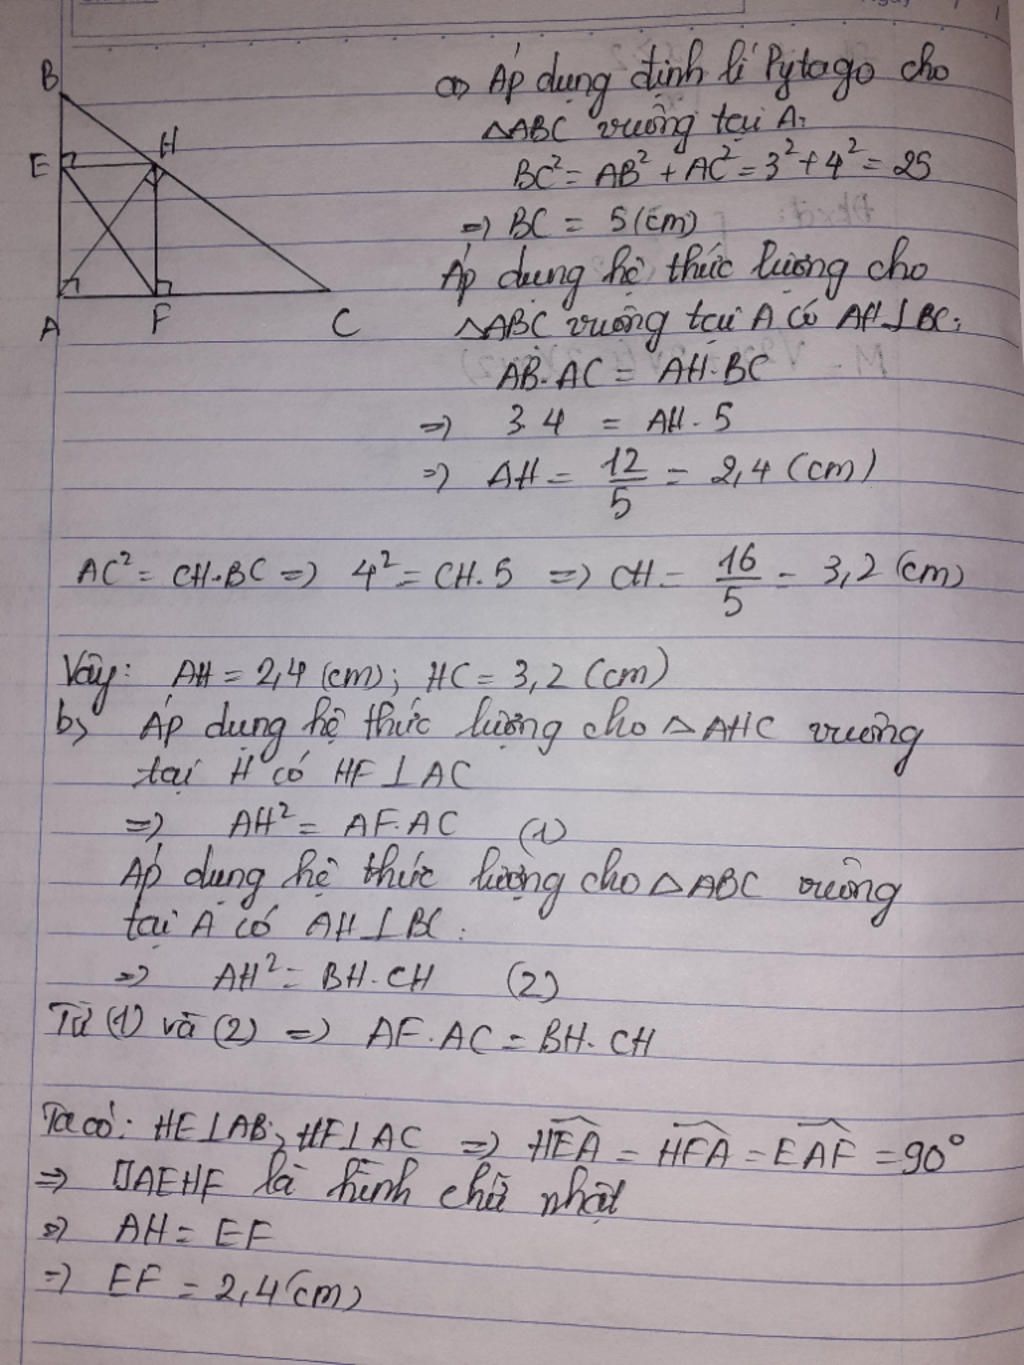 B
E
H
A
F
C
a) Áp dụng định lí Pytago cho
△ABC vuông tại A:
BC² = AB² + AC² = 3² + 4² = 25
=> BC = 5 (cm)
Áp dụng hệ thức lượng cho
△ABC vuông tại A có AH⊥BC:
AB.AC = AH.BC
=> 3.4 = AH.5
=> AH = 12/5 = 2,4 (cm)
AC² = CH.BC => 4² = CH.5 => CH = 16/5 = 3,2 (cm)
Vậy: AH = 2,4 (cm); HC = 3,2 (cm)
b) Áp dụng hệ thức lượng cho △AHC vuông
tại H có HF⊥AC
=> AH² = AF.AC (1)
Áp dụng hệ thức lượng cho △ABC vuông
tại A có AH⊥BC:
=> AH² = BH.CH (2)
Từ (1) và (2) => AF.AC = BH.CH
Ta có: HE⊥AB; HF⊥AC => HEA = HFA = EAF = 90°
=> □AEHF là hình chữ nhật
=> AH = EF
=> EF = 2,4 (cm)